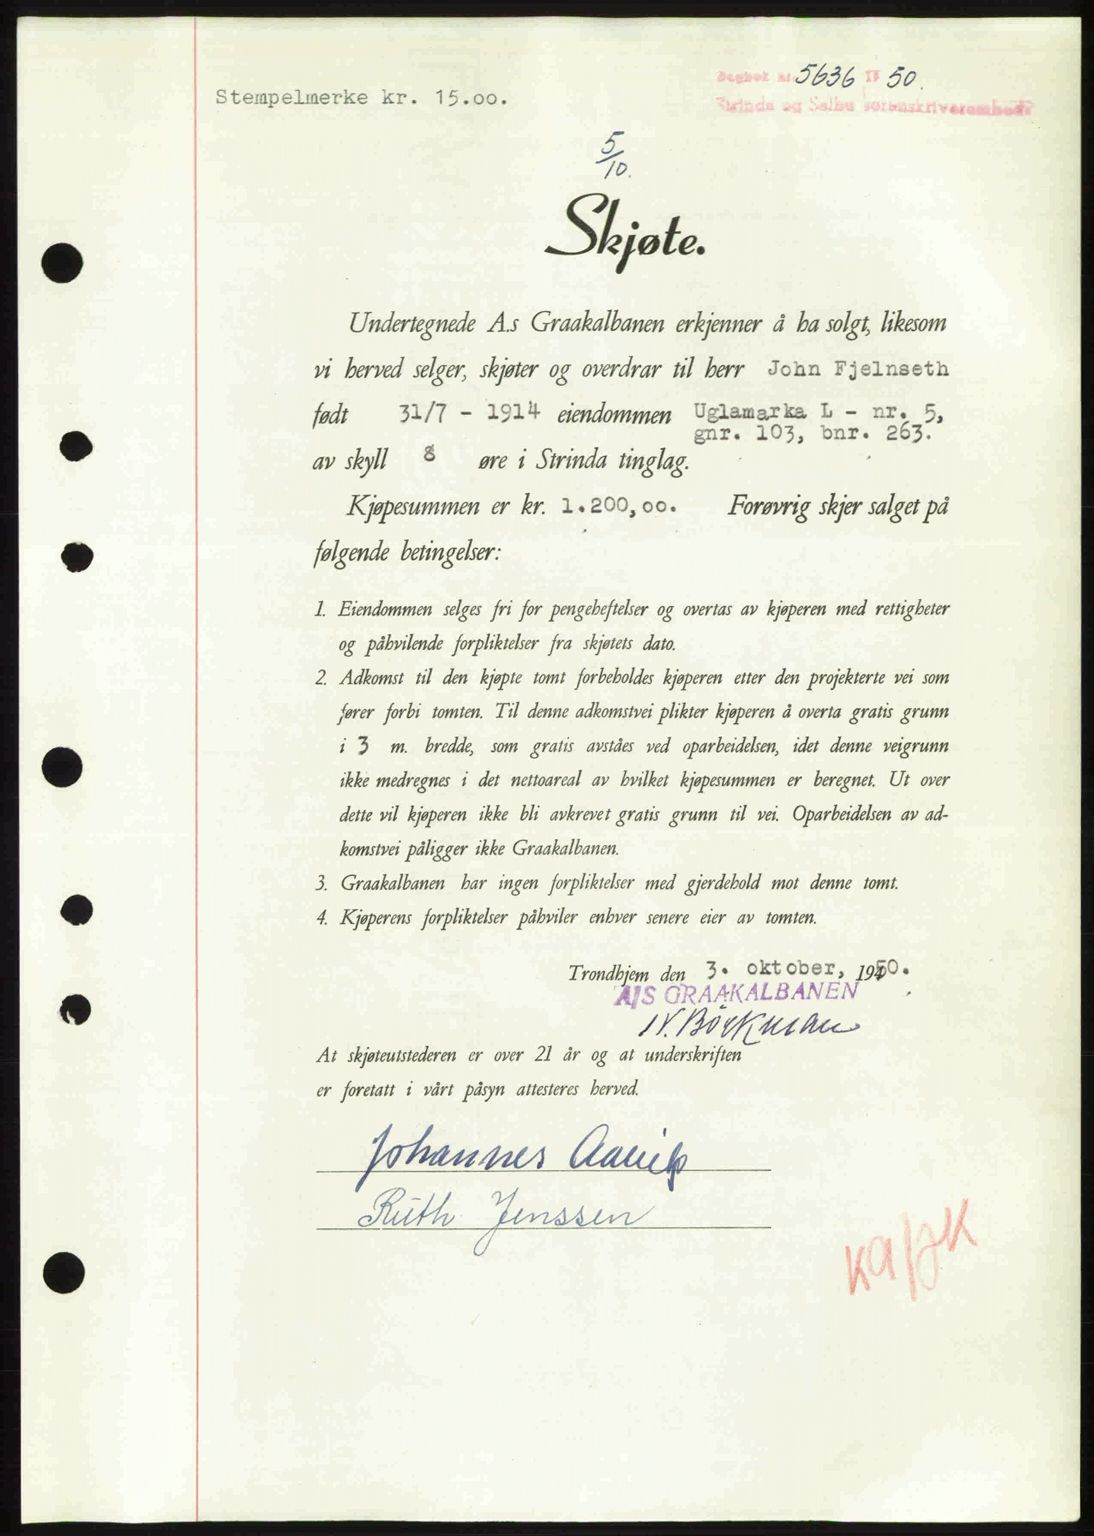 Dagbok nr. 5636 19 50.
Stempelmerke kr. 15.oo.
Strinda og Selbu sorenskriverembede
5/10.
Skjøte.
Undertegnede A.s Graakalbanen erkjenner å ha solgt, likesom
vi herved selger, skjøter og overdrar til herr John Fjelnseth
født 31/7 - 1914 eiendommen Uglamarka L - nr. 5,
gnr. 103, bnr. 263.
av skyll 8 øre i Strinda tinglag.
Kjøpesummen er kr. 1.200,oo. Forøvrig skjer salget på
følgende betingelser:
1. Eiendommen selges fri for pengeheftelser og overtas av kjøperen med rettigheter
og påhvilende forpliktelser fra skjøtets dato.
2. Adkomst til den kjøpte tomt forbeholdes kjøperen etter den projekterte vei som
fører forbi tomten. Til denne adkomstvei plikter kjøperen å overta gratis grunn
i 3 m. bredde, som gratis avståes ved oparbeidelsen, idet denne veigrunn
ikke medregnes i det nettoareal av hvilket kjøpesummen er beregnet. Ut over
dette vil kjøperen ikke bli avkrevet gratis grunn til vei. Oparbeidelsen av ad-
komstvei påligger ikke Graakalbanen.
3. Graakalbanen har ingen forpliktelser med gjerdehold mot denne tomt.
4. Kjøperens forpliktelser påhviler enhver senere eier av tomten.
Trondhjem den 3. oktober, 1950.
A/S GRAAKALBANEN
N. Böckman
At skjøteutstederen er over 21 år og at underskriften
er foretatt i vårt påsyn attesteres herved.
Johannes
Ruth Jenssen